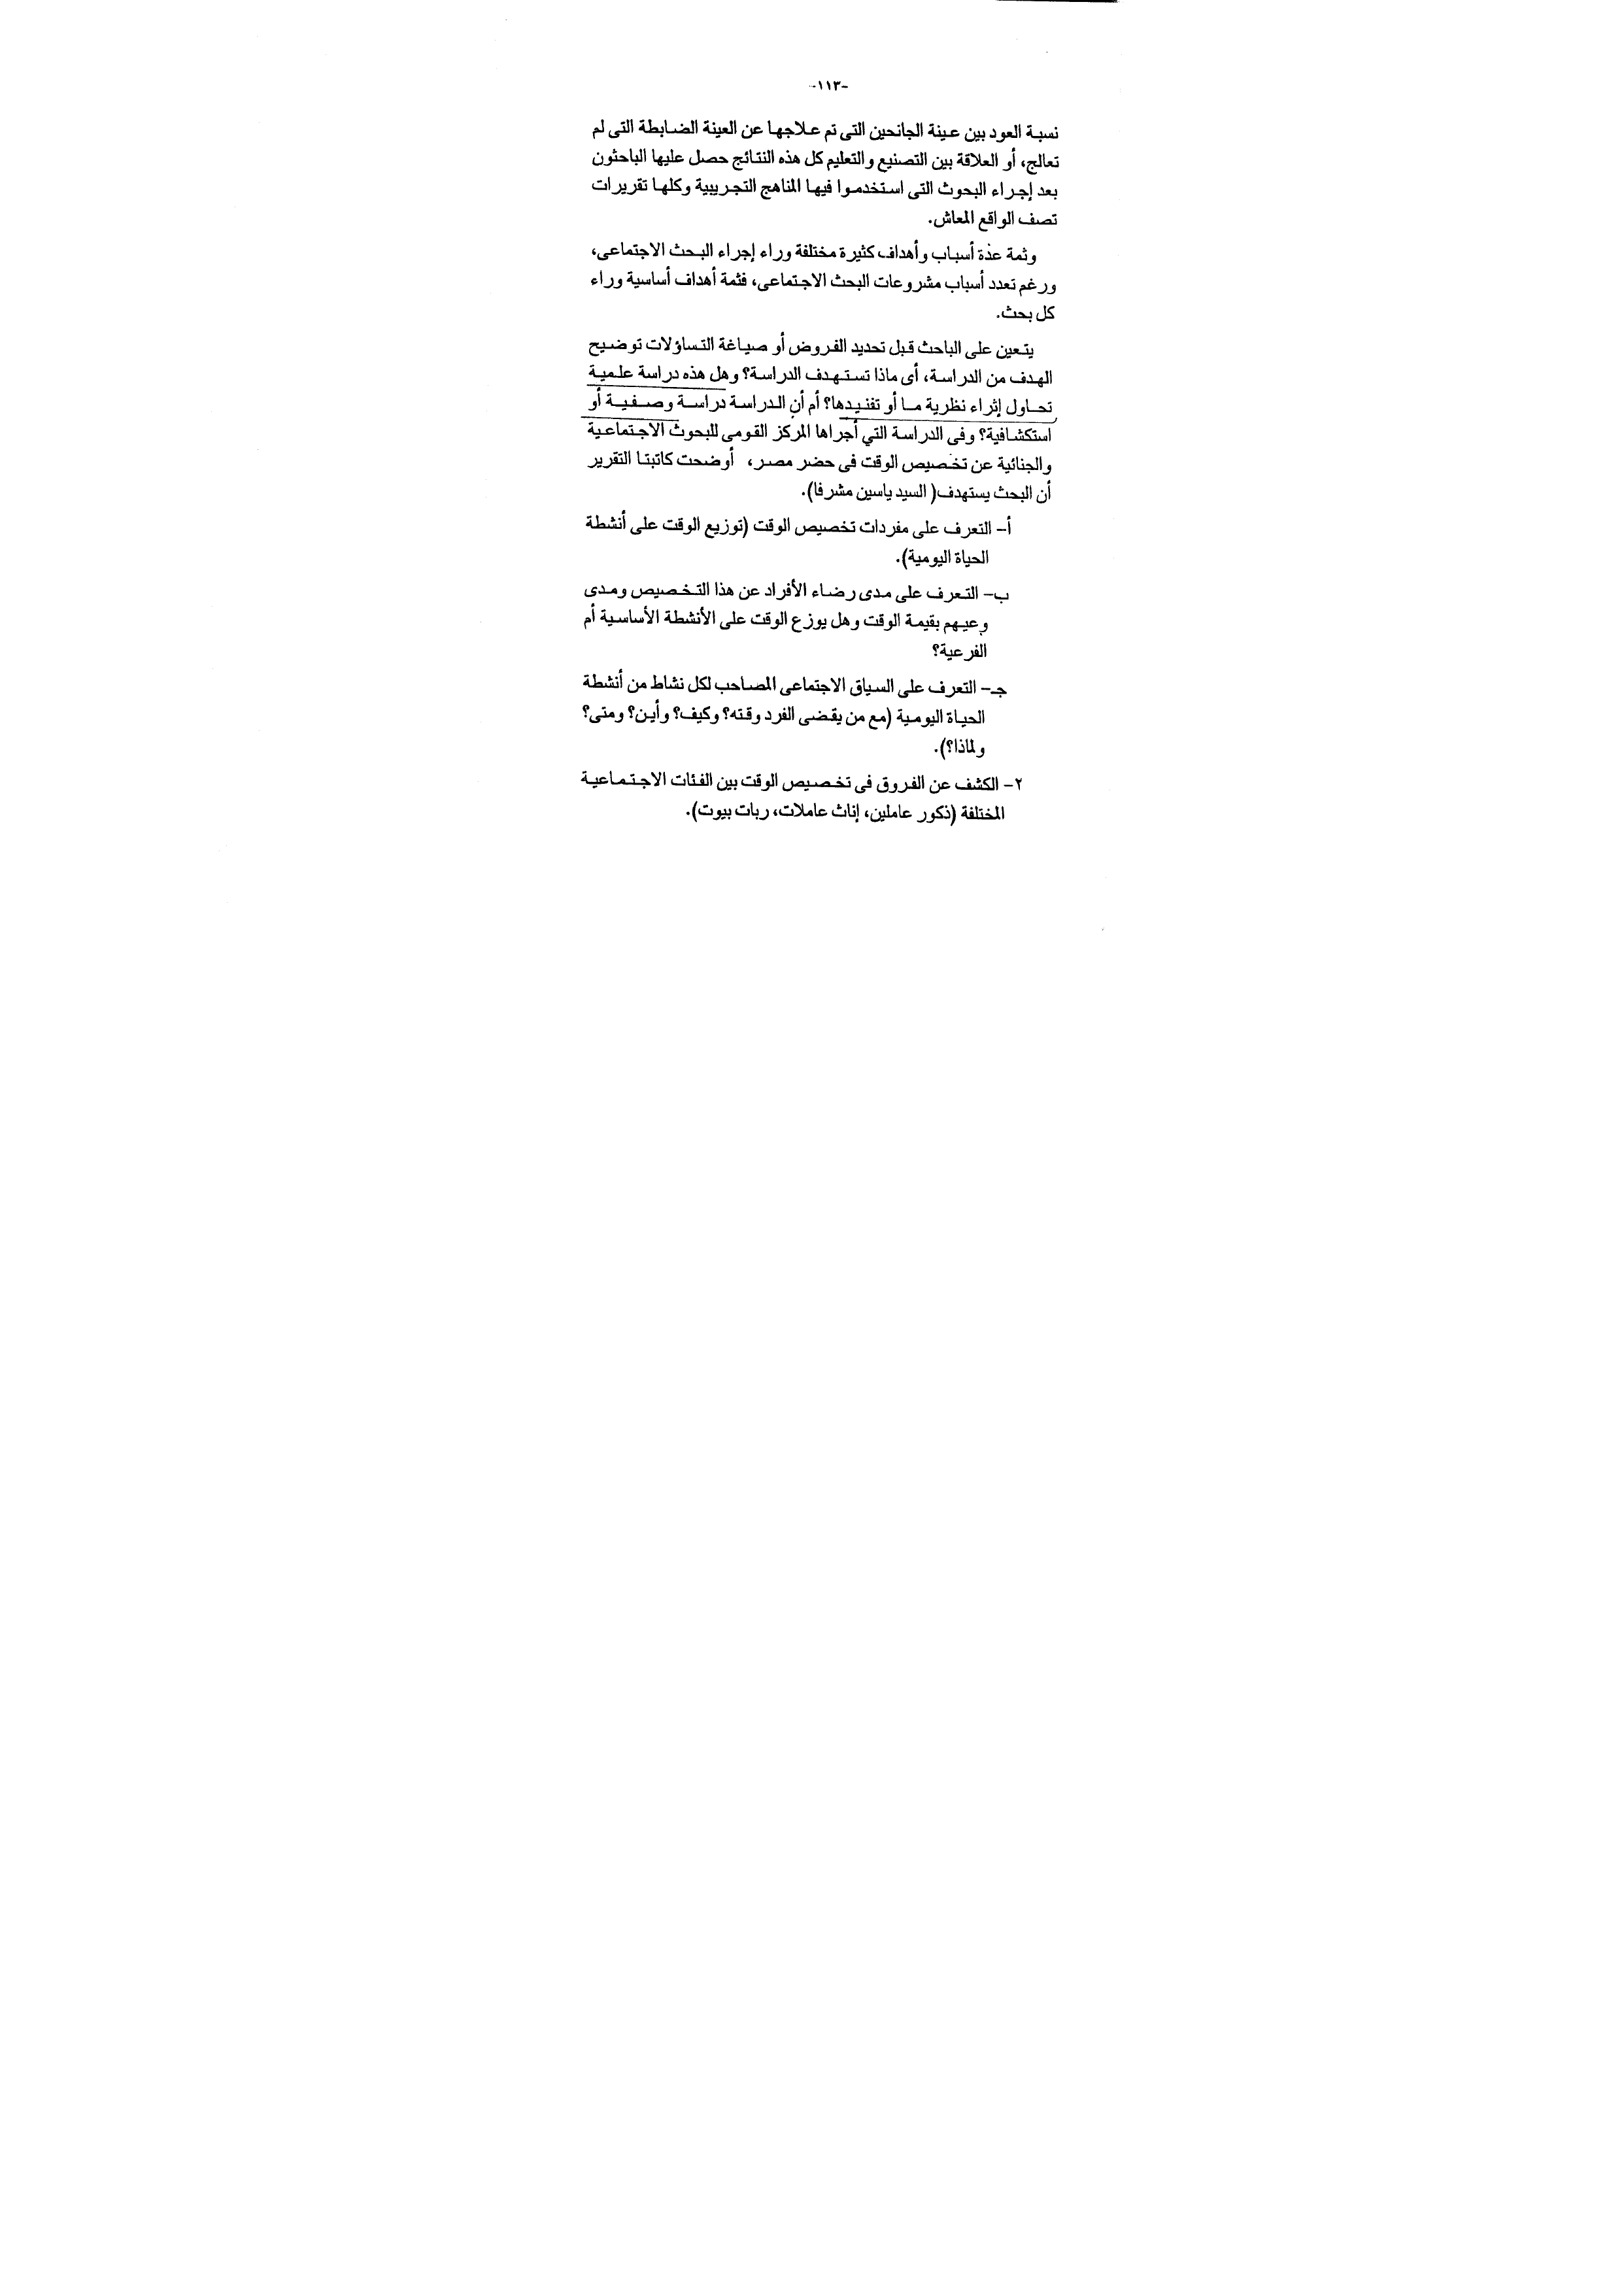 -١١٣-
نسبة العود بين عينة الجانحين التى تم علاجها عن العينة الضابطة التى لم
تعالج، أو العلاقة بين التصنيع والتعليم كل هذه النتائج حصل عليها الباحثون
بعد إجراء البحوث التى استخدموا فيها المناهج التجريبية وكلها تقريرات
تصف الواقع المعاش.
وثمة عدة أسباب وأهداف كثيرة مختلفة وراء إجراء البحث الاجتماعى،
ورغم تعدد أسباب مشروعات البحث الاجتماعى، فثمة أهداف أساسية وراء
كل بحث.
يتعين على الباحث قبل تحديد الفروض أو صياغة التساؤلات توضيح
الهدف من الدراسة، أى ماذا تستهدف الدراسة؟ وهل هذه دراسة علمية
تحاول إثراء نظرية ما أو تفنيدها؟ أم أن الدراسة دراسة وصفية أو
استكشافية؟ وفى الدراسة التي أجراها المركز القومى للبحوث الاجتماعية
والجنائية عن تخصيص الوقت فى حضر مصر، أوضحت كاتبتا التقرير
أن البحث يستهدف( السيد ياسين مشرفا).
أ- التعرف على مفردات تخصيص الوقت (توزيع الوقت على أنشطة
الحياة اليومية).
ب- التعرف على مدى رضاء الأفراد عن هذا التخصيص ومدى
وعيهم بقيمة الوقت وهل يوزع الوقت على الأنشطة الأساسية أم
الفرعية؟
جـ- التعرف على السياق الاجتماعى المصاحب لكل نشاط من أنشطة
الحياة اليومية (مع من يقضى الفرد وقته؟ وكيف؟ وأين؟ ومتى؟
ولماذا؟).
٢- الكشف عن الفروق فى تخصيص الوقت بين الفئات الاجتماعية
المختلفة (ذكور عاملين، إناث عاملات، ربات بيوت).